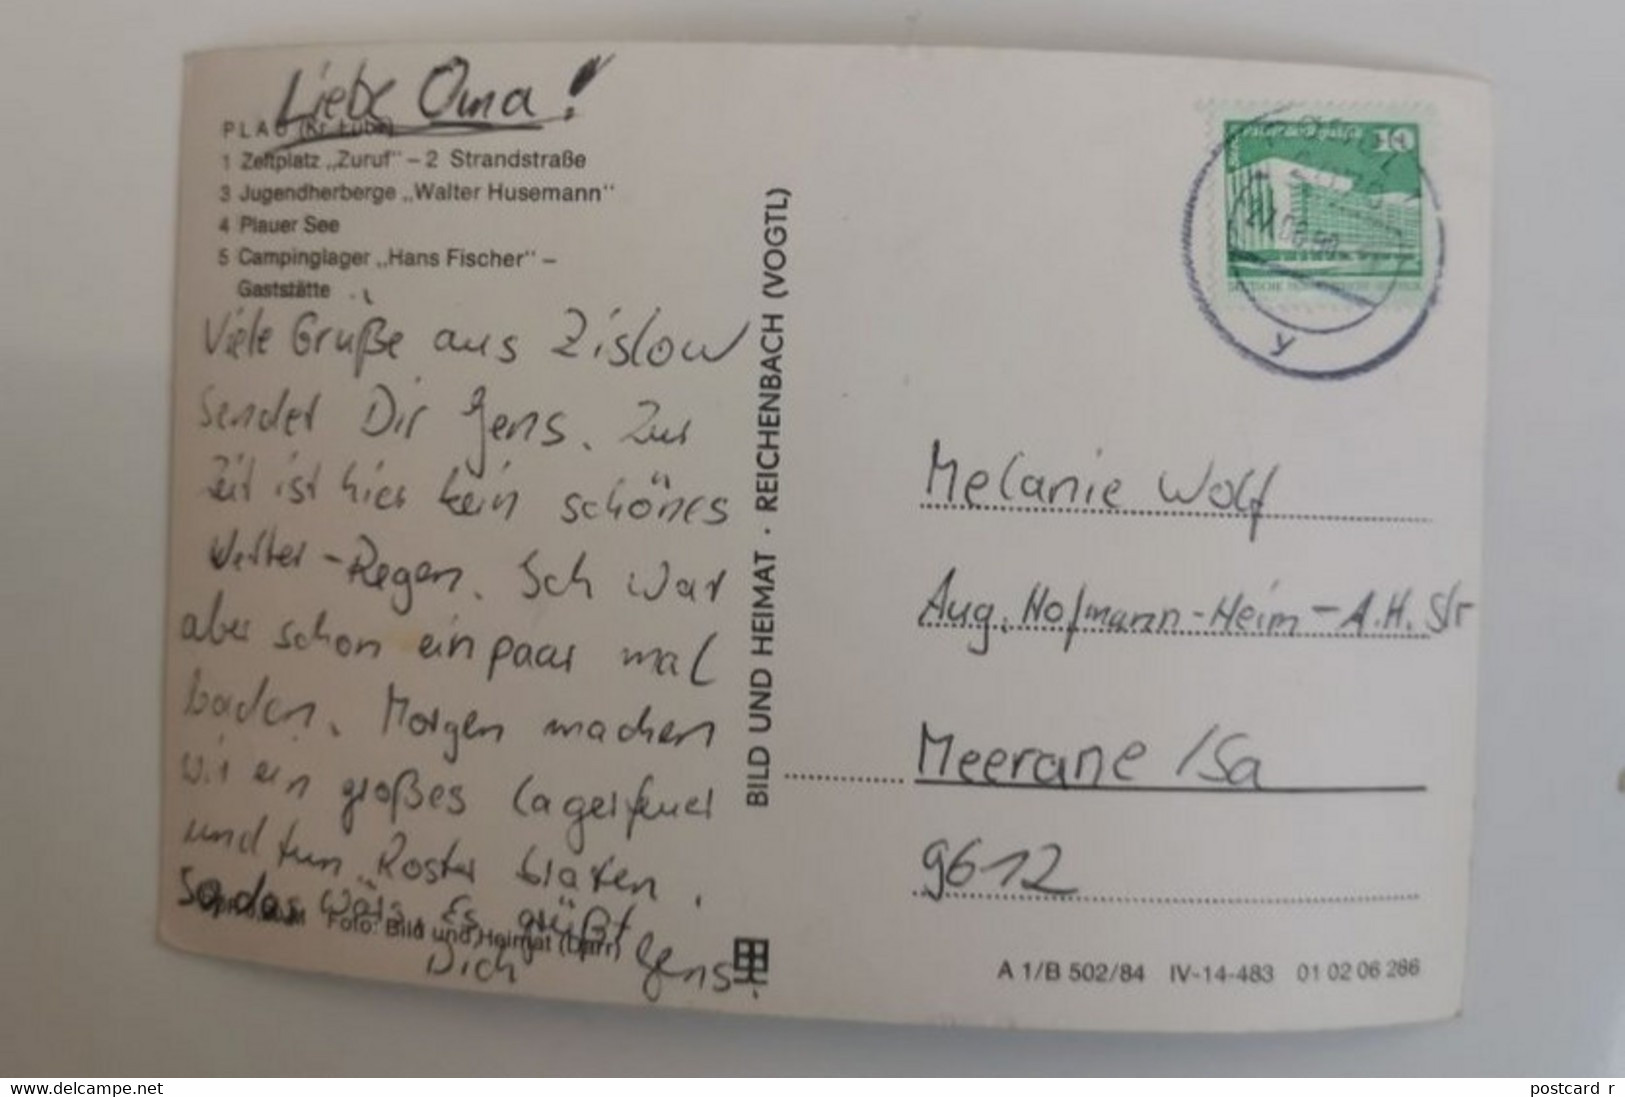 Liebe Oma!
PLAU (Kr. Lübz)
1 Zeltplatz „Zuruf" – 2 Strandstraße
3 Jugendherberge „Walter Husemann"
4 Plauer See
5 Campinglager „Hans Fischer" –
Gaststätte
Viele Grüße aus Zislow
sendet Dir Jens. Zur
Zeit ist hier kein schönes
Wetter - Regen. Ich war
aber schon ein paar mal
baden. Morgen machen
wir ein großes Lagerfeuer
und tun Roster braten.
So das wärs. Es grüßt
Dich Jens.
Foto: Bild und Heimat
BILD UND HEIMAT · REICHENBACH (VOGTL)
10
27.06.90
y
Melanie Wolf
Aug. Hofmann-Heim - A.H. Str
Meerane /Sa
9612
A 1/B 502/84 IV-14-483 01 02 06 286
www.delcampe.net
postcard_r